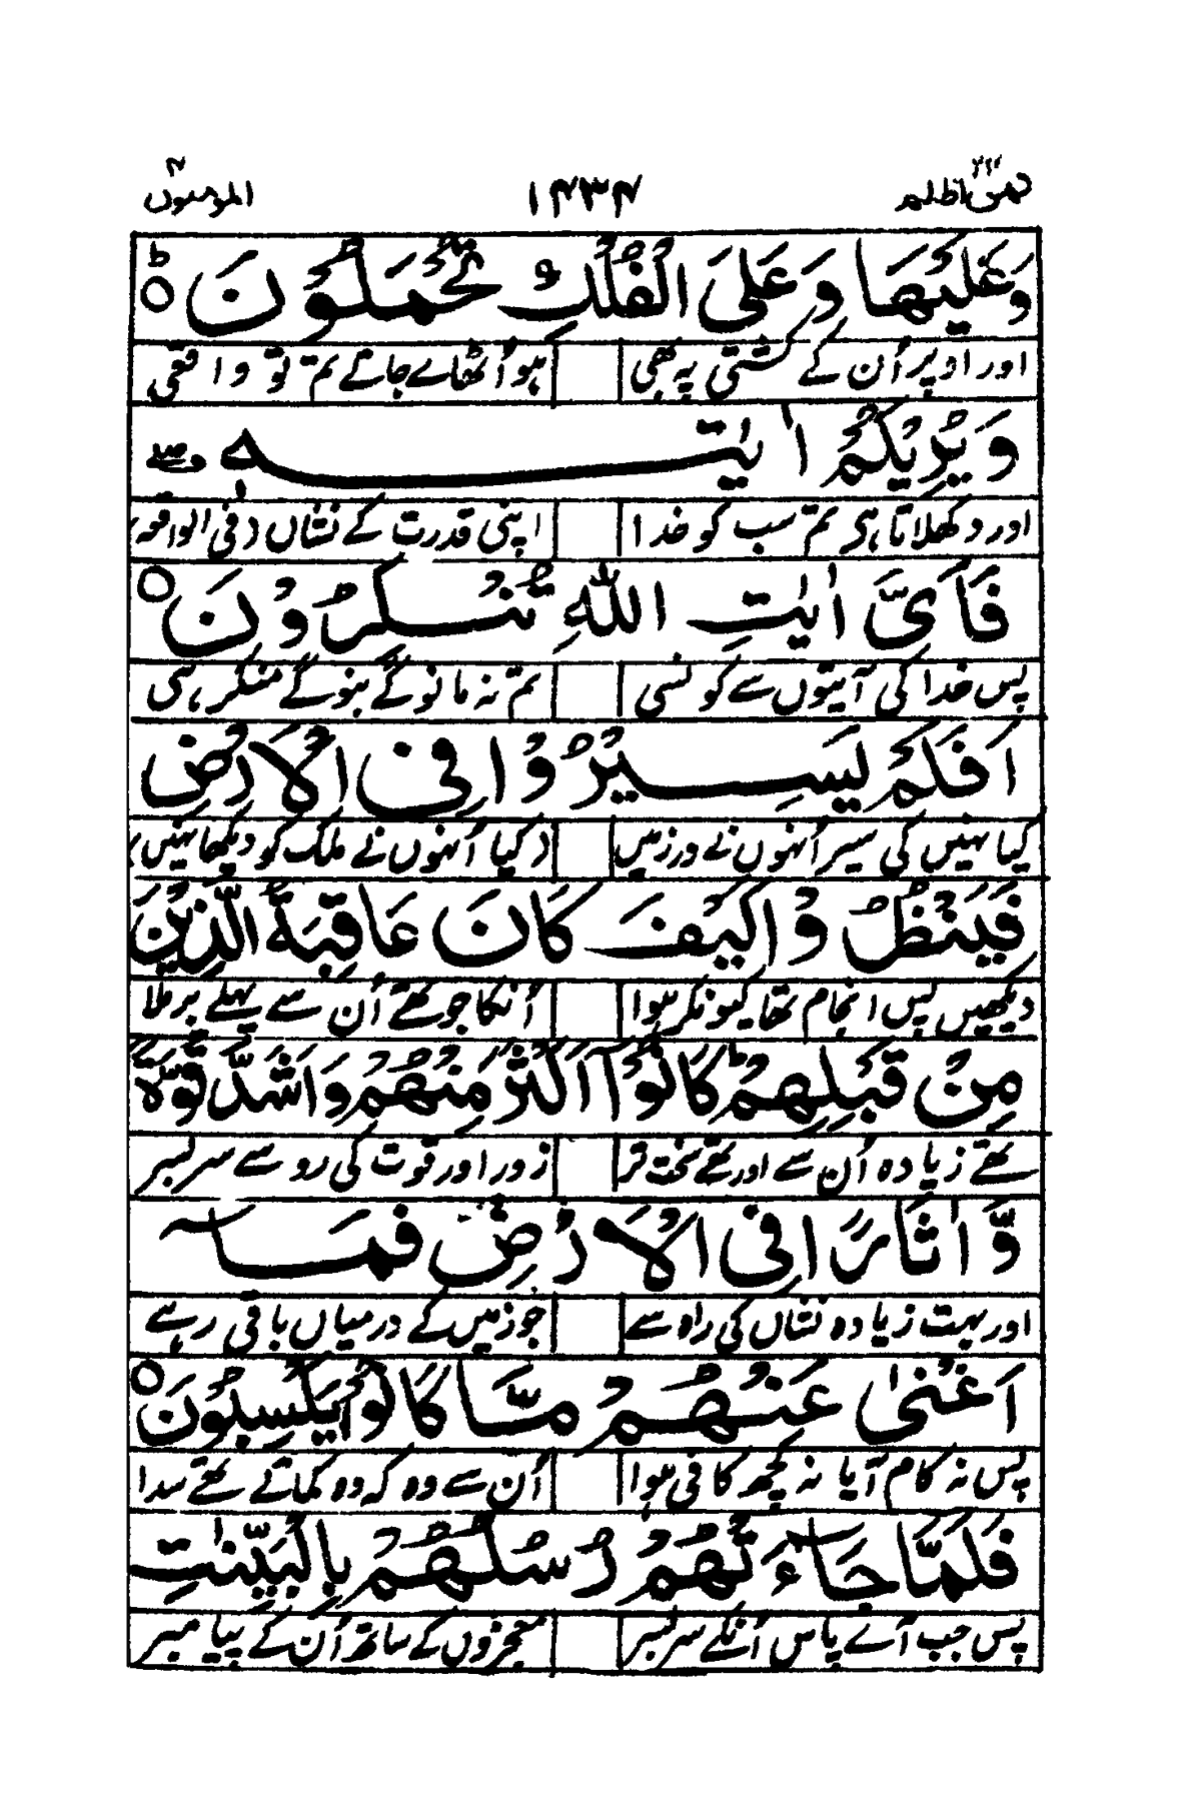 فمن اظلم ۲۴ ۱۴۳۴ المؤمنون ۴
وَعَلَيْهَا وَعَلَى الْفُلْكِ تُحْمَلُوْنَ ۝ؕ
اور اوپر اُن کے کشتی پہ بھی ہو اُٹھاے جاتے تم تو واقعی
وَيُرِيْكُمْ اٰيٰتِهٖ
اور دکھلاتا ہی تم سب کو خدا اپنی قدرت کے نشاں
فَاَىَّ اٰيٰتِ اللّٰهِ تُنْكِرُوْنَ ۝
پس خدا کی آیتوں سے کونسی تم نہ مانو گے بنو گے منکر ہی
اَفَلَمْ يَسِيْرُوْا فِى الْاَرْضِ
کیا نہیں کی سیر اُنہوں نے در زمیں کیا اُنہوں نے ملک کو دیکھا نہیں
فَيَنْظُرُوْا كَيْفَ كَانَ عَاقِبَةُ الَّذِيْنَ
دیکھیں پس انجام تھا کیونکر ہوا اُنکا جو تھے اُن سے پہلے برملا
مِنْ قَبْلِهِمْؕ كَانُوْۤا اَكْثَرَ مِنْهُمْ وَاَشَدَّ قُوَّةً
تھے زیادہ اُن سے اور تھے سخت تر زور اور قوت کی رو سے سربسر
وَّاٰثَارًا فِى الْاَرْضِ فَمَاۤ
اور بہت زیادہ نشاں کی راہ سے جو زمیں کے درمیاں باقی رہے
اَغْنٰى عَنْهُمْ مَّا كَانُوْا يَكْسِبُوْنَ ۝
پس نہ کام آیا نہ کچھ کافی ہوا اُن سے وہ کہ وہ کماتے تھے سدا
فَلَمَّا جَآءَتْهُمْ رُسُلُهُمْ بِالْبَيِّنٰتِ
پس جب آے پاس اُنکے سربسر معجزوں کے ساتھ اُن کے پیامبر